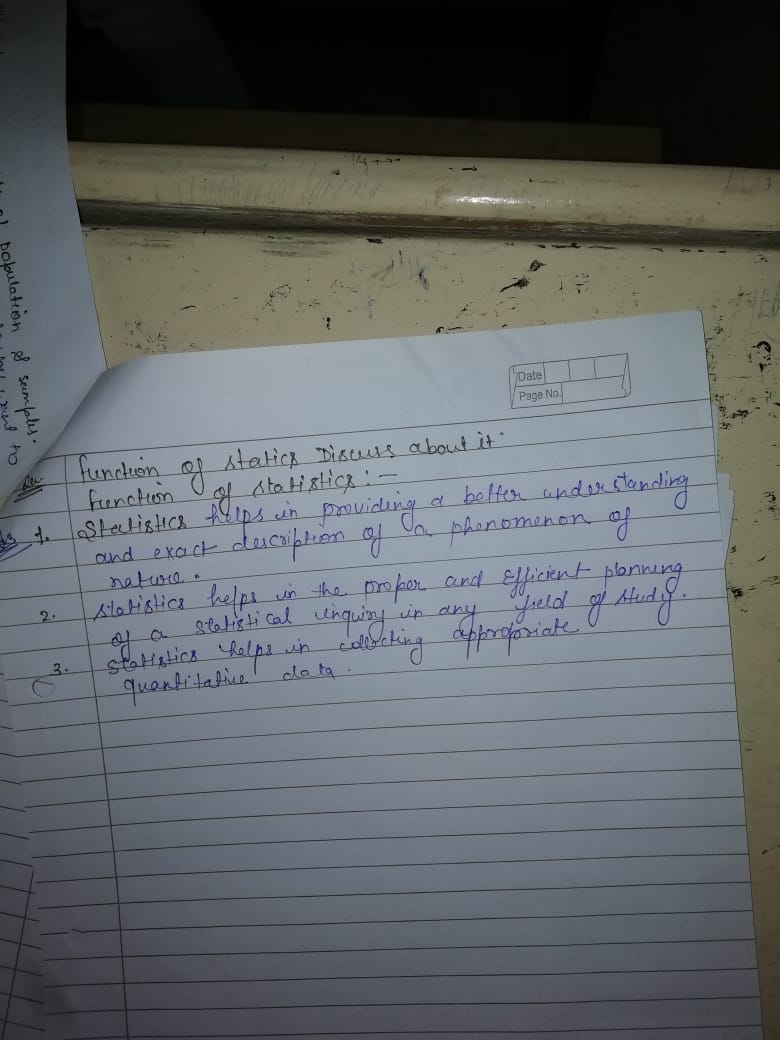 of population & samples.
to
Date
Page No.
Function of statics Discuss about it.
Function of statistics :-
1. Statistics helps in providing a better understanding
and exact description of a phenomenon of
nature.
2. Statistics helps in the proper and Efficient planning
of a statistical inquiry in any field of study.
3. Statistics helps in collecting appropriate
quantitative data.